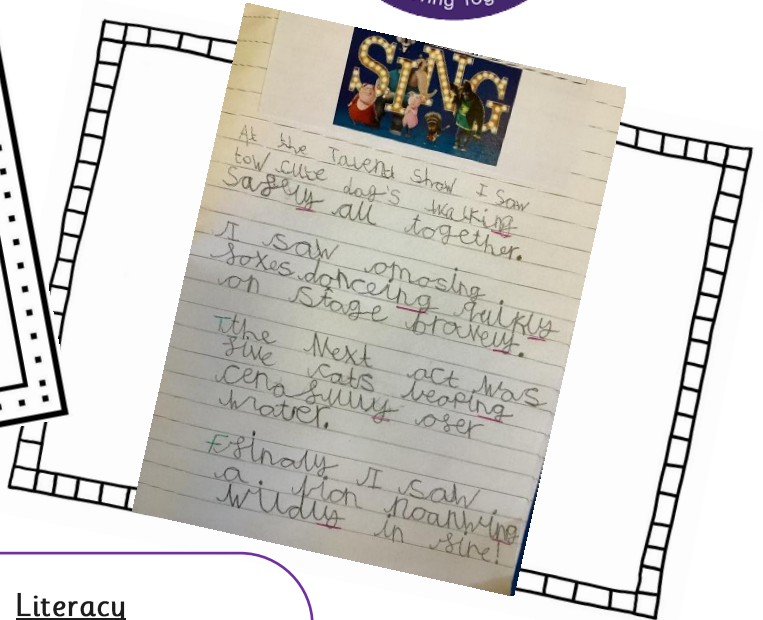 ring Toy
SiNG
At the Talent Show I Saw
tow cute dog's walking
safely all together.
I saw omosing
foxes danceing quikly
on stage bravely.
Tthe Next act was
five cats leaping
cenafully ofer
water.
Ffinaly I saw
a lion roanwing
wildly in fire!
Literacy